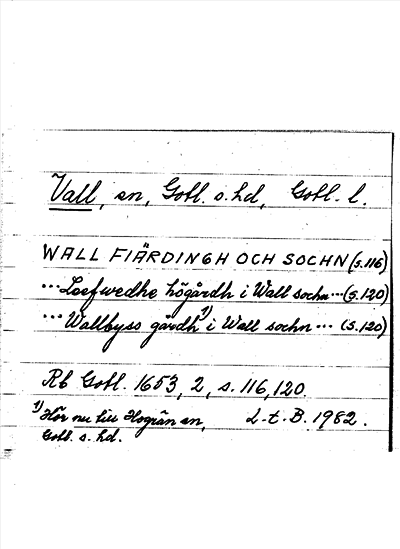 Vall, sn, Gotl. s. hd, Gotl. l.
WALL FIÄRDINGH OCH SOCHN (s.116)
... Loefwedhe högårdh i Wall sochn ... (s.120)
... Wallbyss gårdh 1) i Wall sochn ... (s.120)
Rb Gotl. 1653, 2, s. 116, 120.
1) Hör nu till Hogrän sn, L-t-B. 1982.
Gotl. s. hd.